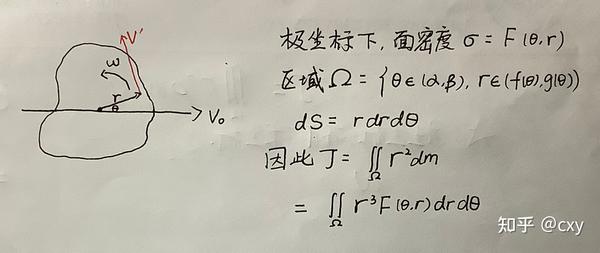 V'
ω
r
θ
V₀
极坐标下，面密度 σ = F(θ,r)
区域 Ω = {θ∈(α,β), r∈(f(θ),g(θ))
dS = rdrdθ
因此 J = ∬_Ω r²dm
= ∬_Ω r³F(θ,r)drdθ
知乎 @cxy